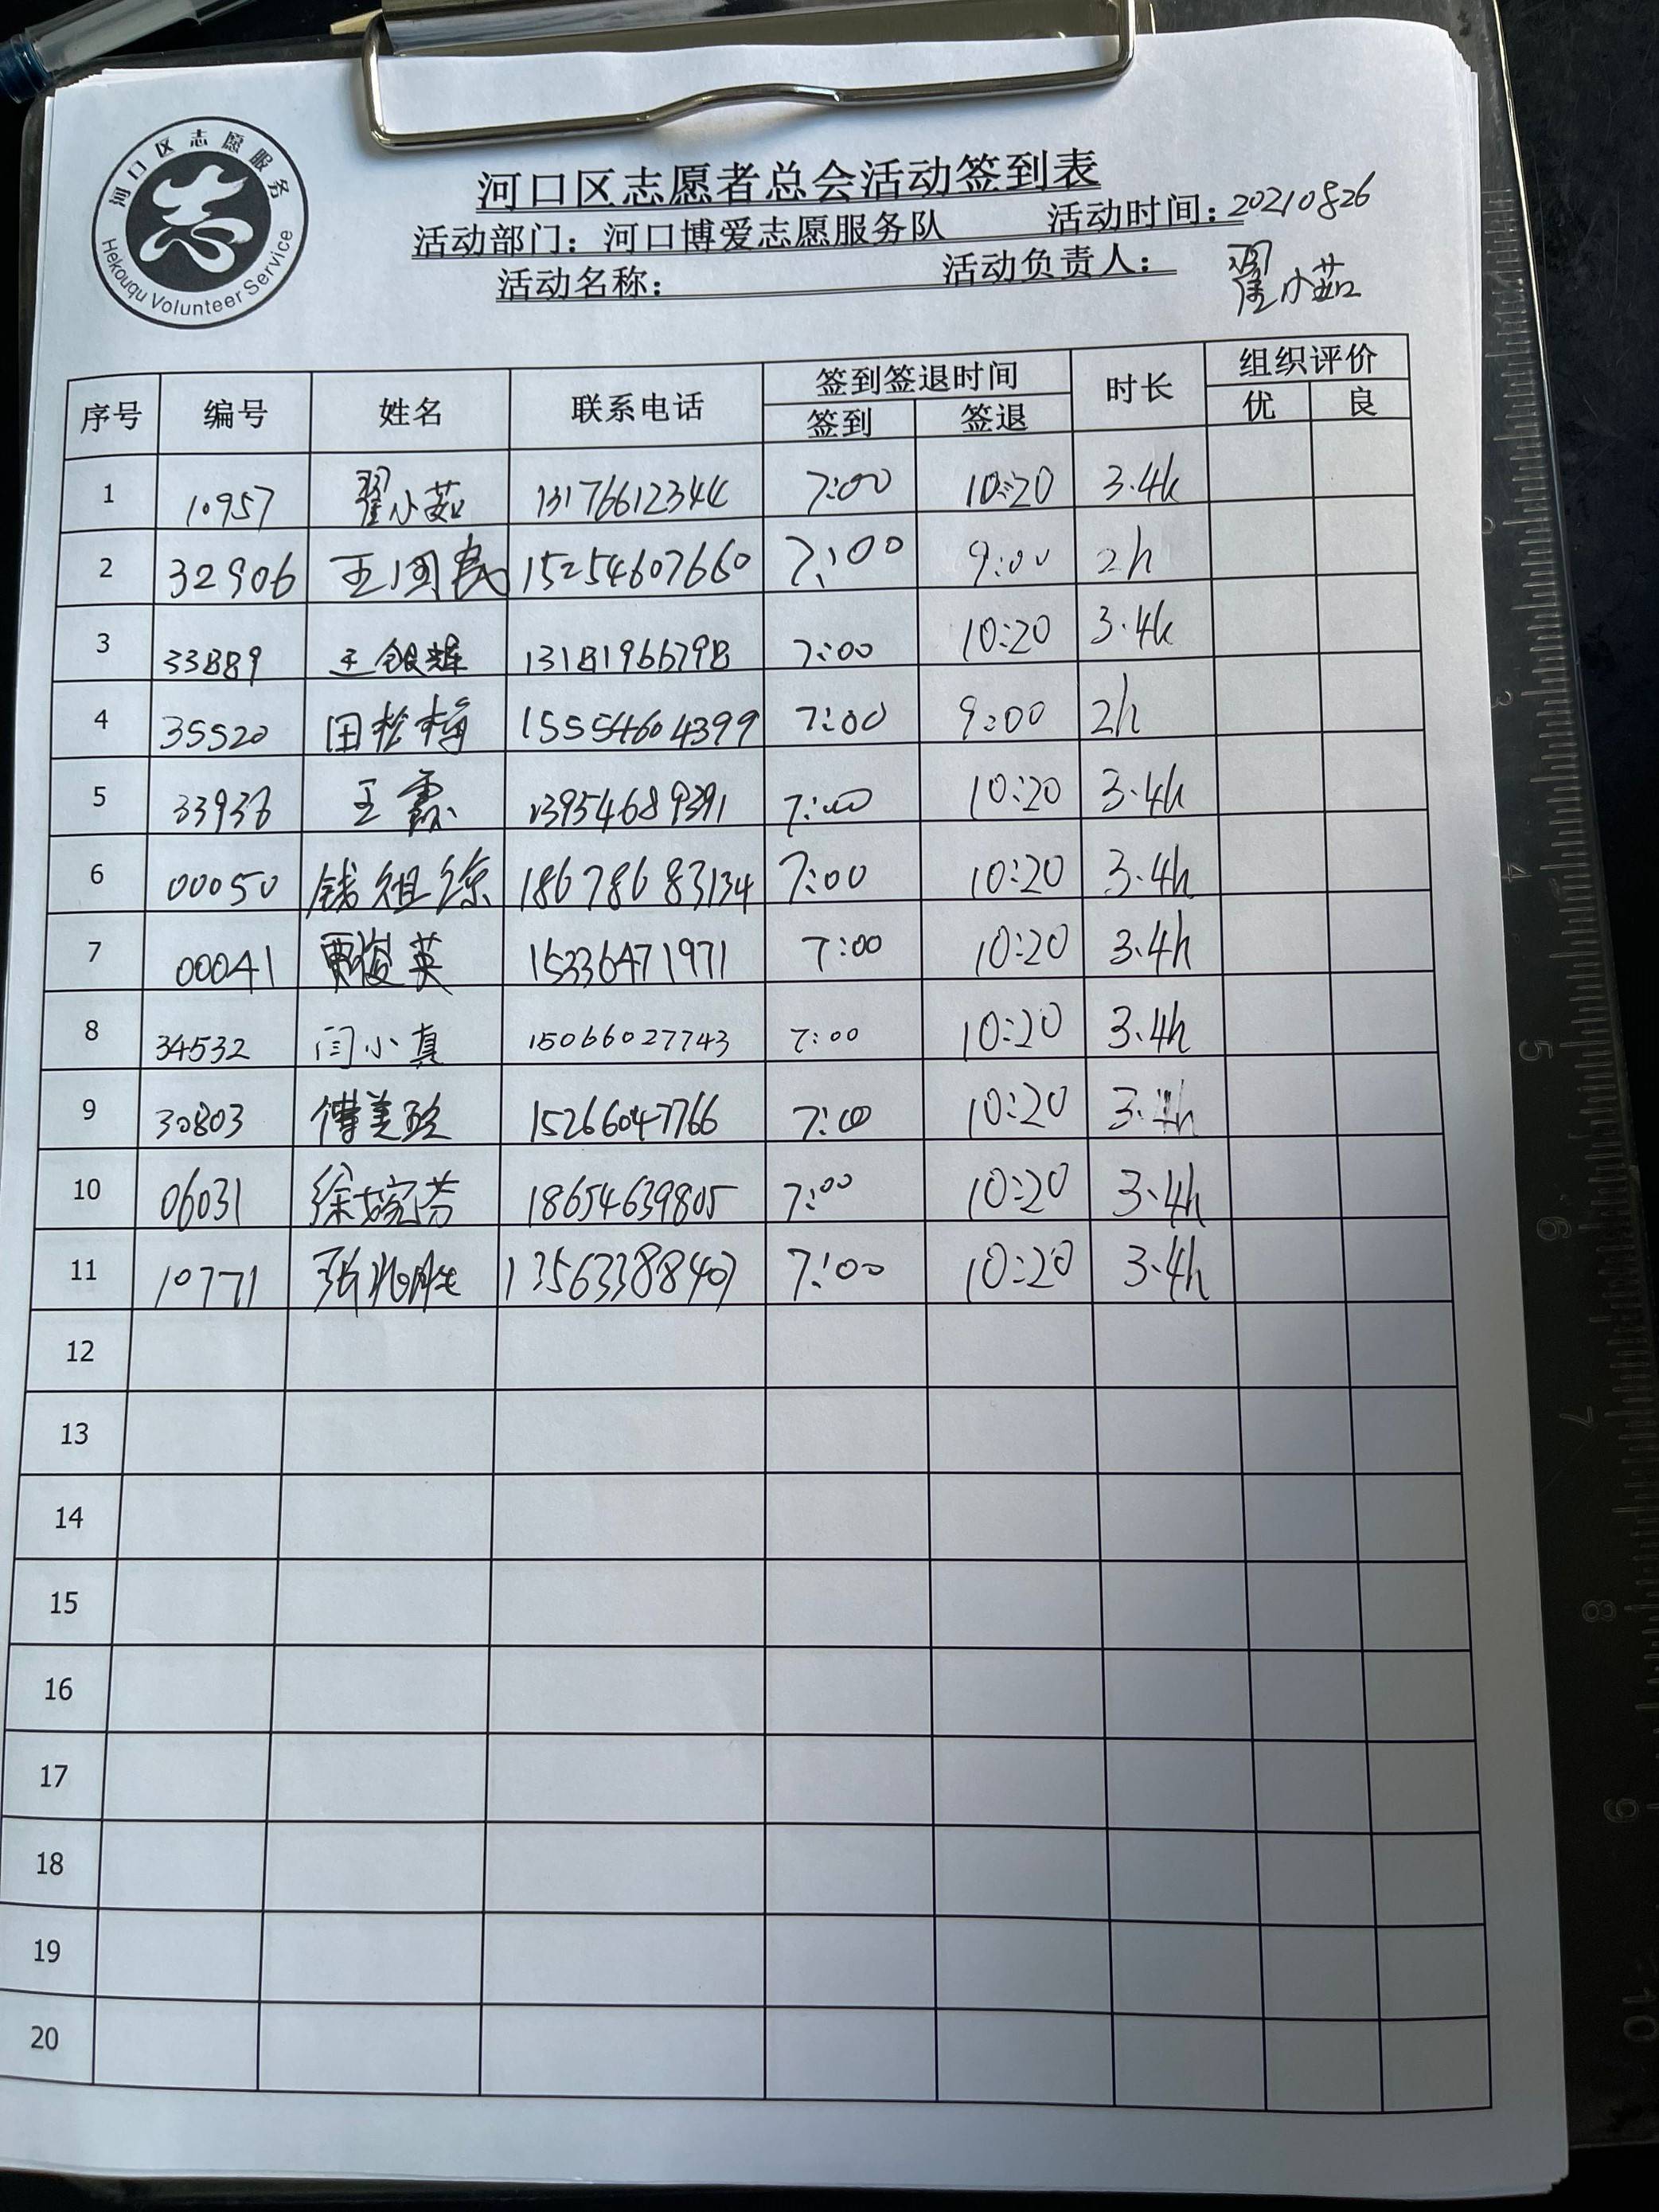 河口区志愿服务
Hekouqu Volunteer Service
河口区志愿者总会活动签到表
活动部门：河口博爱志愿服务队 活动时间：20210826
活动名称： 活动负责人： 翟小茹
序号 编号 姓名 联系电话 签到签退时间 时长 组织评价
签到 签退 优 良
1 10957 翟小茹 13176612344 7:00 10:20 3.4h
2 32906 王国民 15254607660 7:00 9:00 2h
3 33889 王银辉 13181966798 7:00 10:20 3.4h
4 35520 田松梅 15554604399 7:00 9:00 2h
5 33936 王霞 13954689391 7:00 10:20 3.4h
6 00050 钱祖琼 18678683134 7:00 10:20 3.4h
7 00041 贾俊英 15336471971 7:00 10:20 3.4h
8 34532 闫小真 15066027743 7:00 10:20 3.4h
9 30803 傅美玲 15266047766 7:00 10:20 3.4h
10 06031 徐婉芬 18654639805 7:00 10:20 3.4h
11 10771 张兆胜 13563388407 7:00 10:20 3.4h
12
13
14
15
16
17
18
19
20
3
4
5
6
7
8
9
10